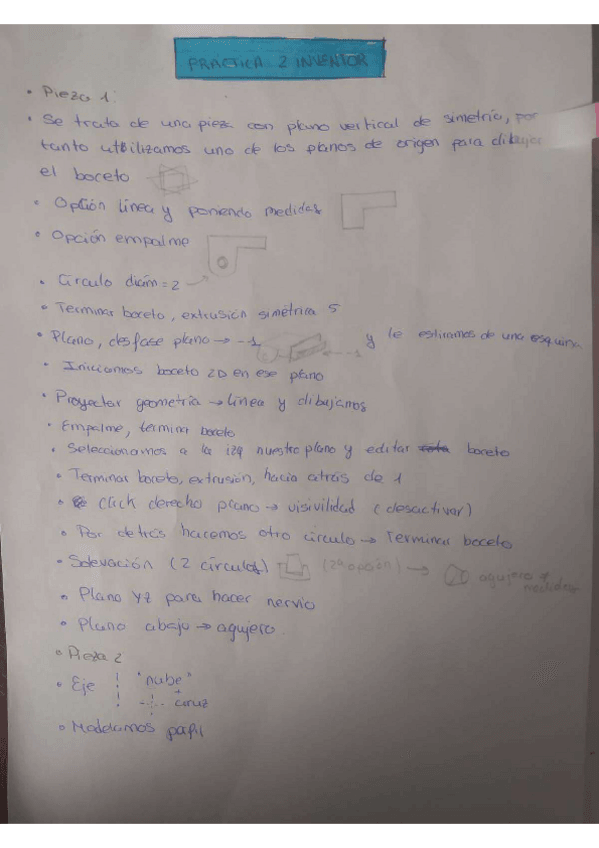 PRACTICA 2 INVENTOR
• Pieza 1
• Se trata de una pieza con plano vertical de simetría, por
tanto utbilizamos uno de los planos de origen para dibujar
el boceto
• Opción línea y poniendo medidas
• Opción empalme
• Círculo diám = 2
• Terminar boceto, extrusión simétrica 5
• Plano, desfase plano → -1 y le estiramos de una esquina
• Iniciamos boceto 2D en ese plano
• Proyectar geometría → línea y dibujamos
• Empalme, terminar boceto
• Seleccionamos a la izq nuestro plano y editar boceto
• Terminar boceto, extrusión, hacia atrás de 1
• Click derecho plano → visivilidad (desactivar)
• Por detrás hacemos otro círculo → Terminar boceto
• Solevación (2 círculos) (2ª opción) → agujero y
medidas
• Plano YZ para hacer nervio
• Plano abajo → agujero
• Pieza 2
• Eje "nube"
+ cruz